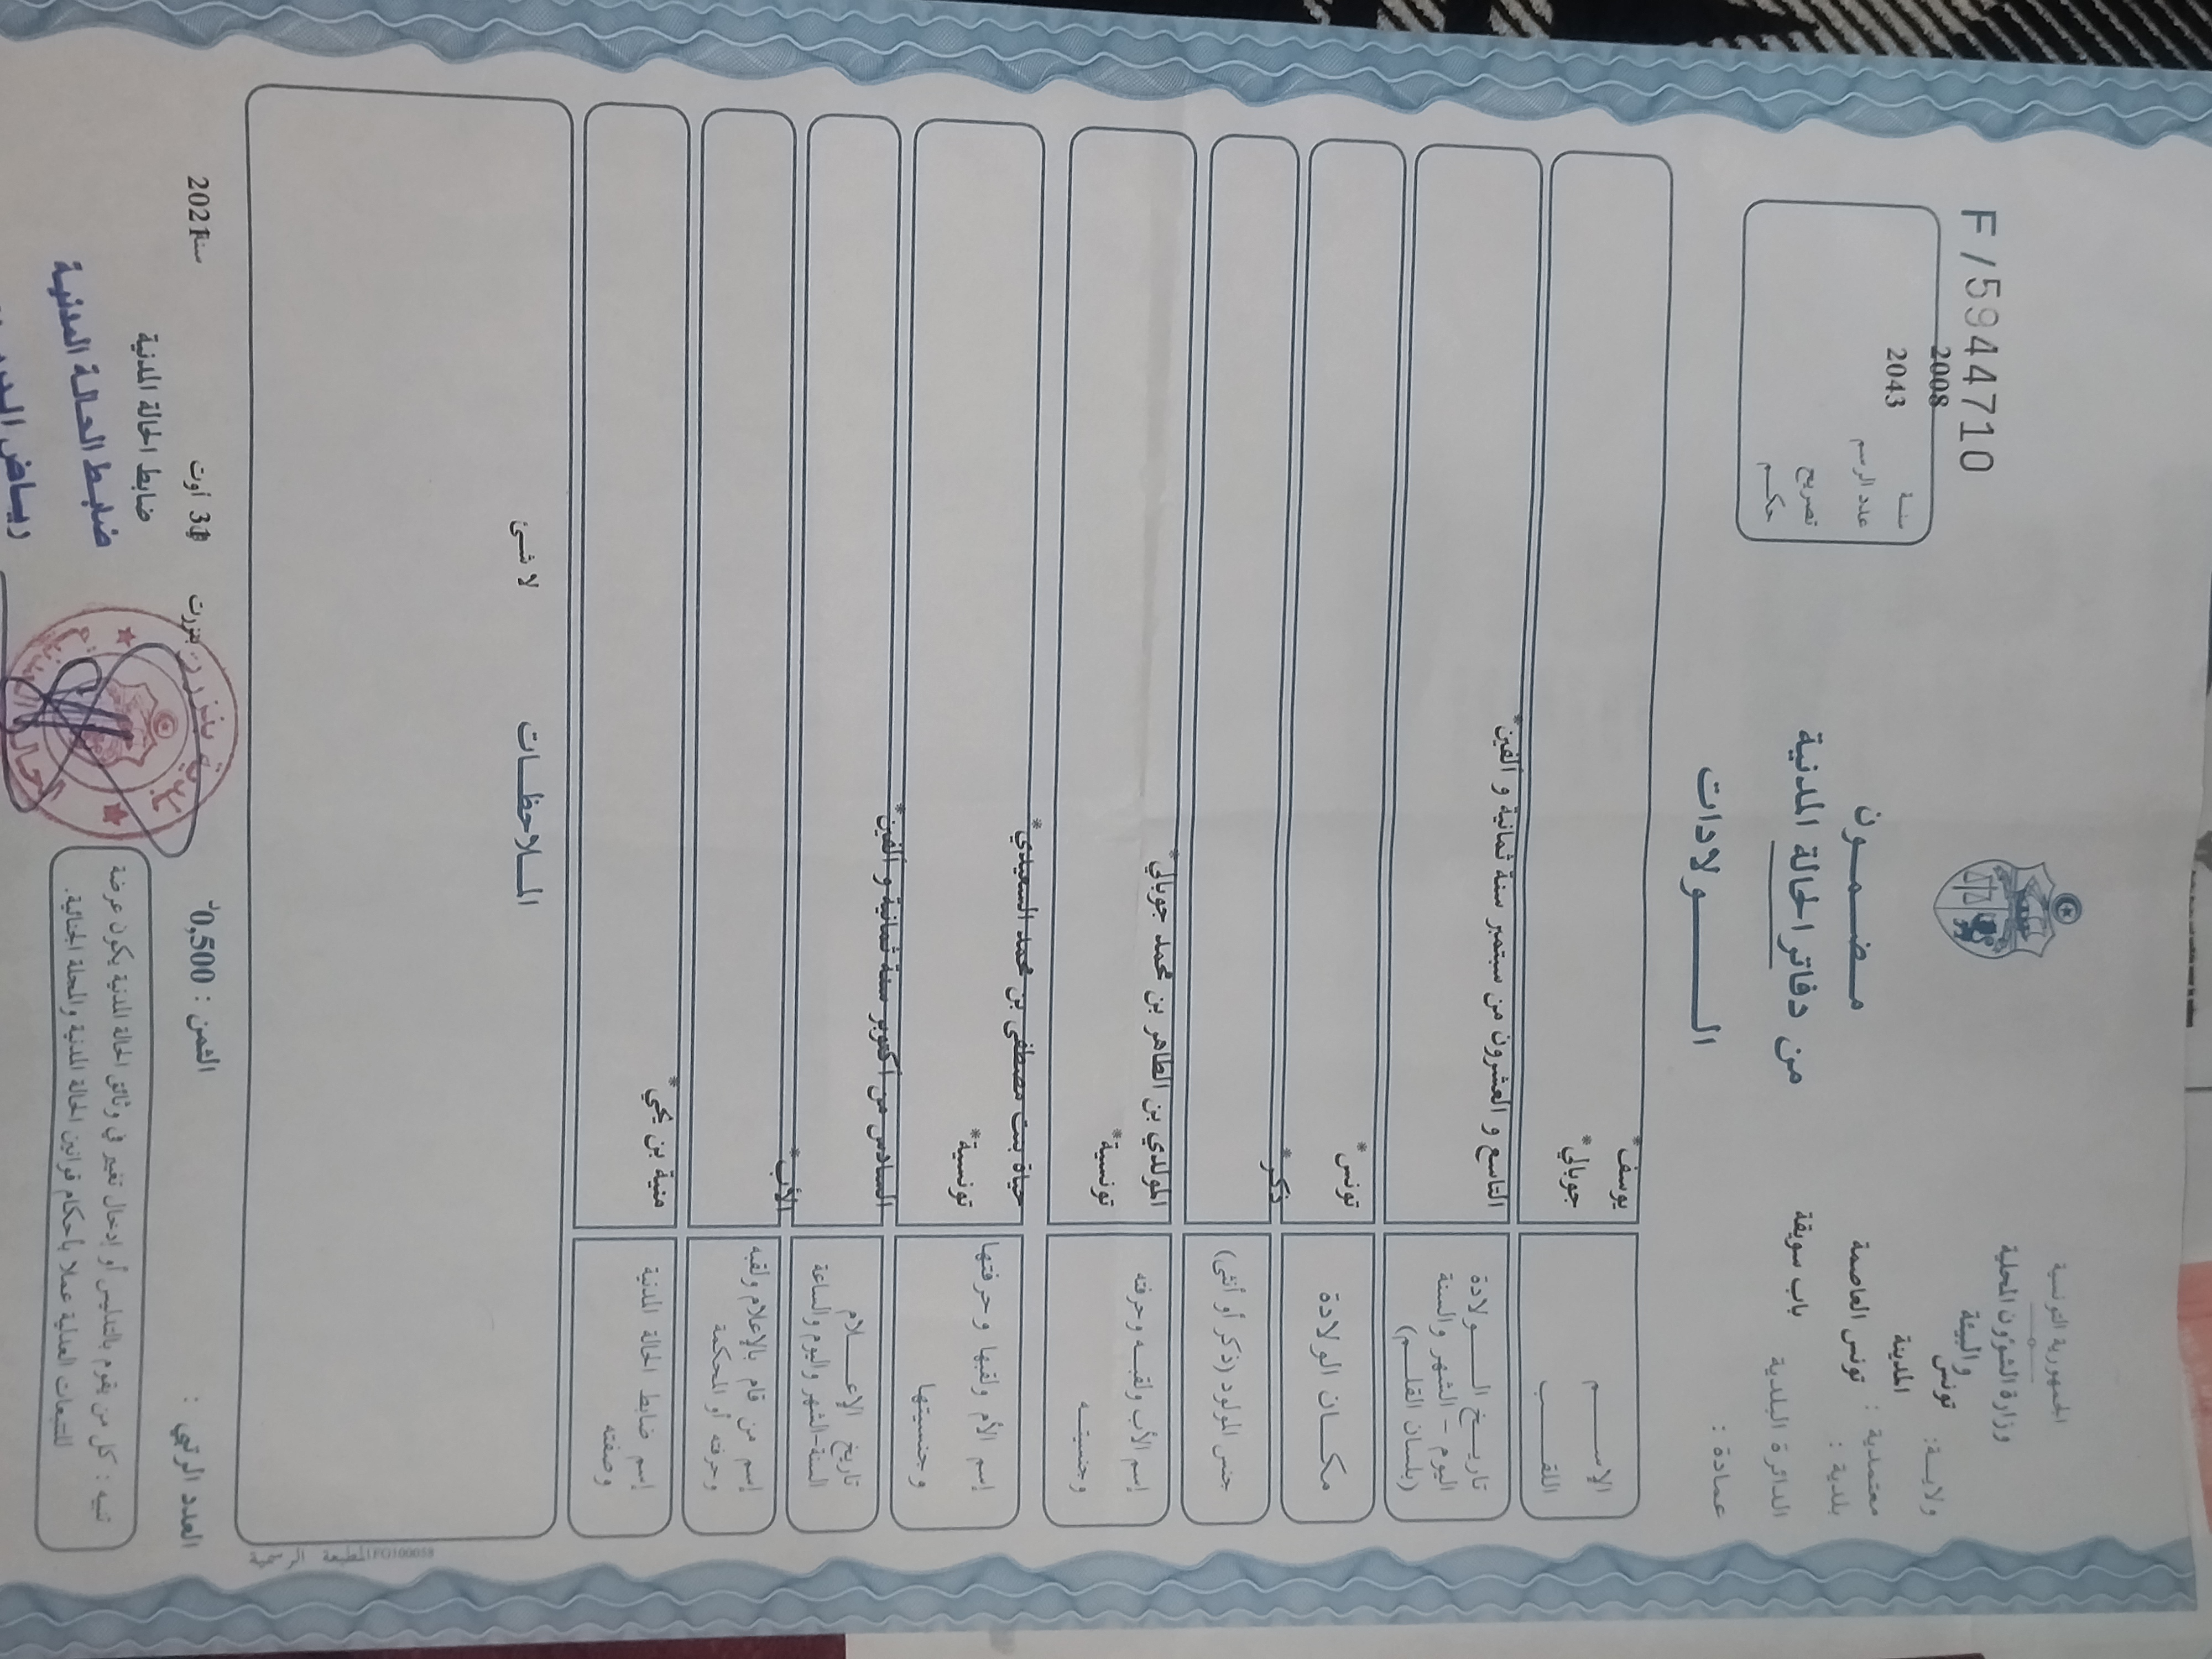 الجمهورية التونسية
وزارة الشؤون المحلية
والبيئة
ولايــة: تونس
معتمدية : المدينة
بلدية : تونس العاصمة
الدائرة البلدية باب سويقة
عمادة :
F/5944710
سنـة 2008
عدد الرسم 2043
تصريح
حكـم
مـضـمـون
من دفاتر الحالة المدنية
الـــولادات
الإســـم يوسف*
اللقـــب جوبالي*
تاريـخ الــولادة
اليوم - الشهر والسنة
(بلسان القلـم)
التاسع و العشرون من سبتمبر سنة ثمانية و ألفين*
مكـان الولادة تونس*
جنس المولود (ذكر أو أنثى) ذكر*
إسم الأب ولقبـه وحرفته المولدي بن الطاهر بن محمد جوبالي*
وجنسيتـه تونسية*
إسم الأم ولقبها وحرفتها حياة بنت مصطفى بن محمد السعيدي*
وجنسيتها تونسية*
تاريخ الإعـــلام
السنة-الشهر واليوم والساعة
السادس من أكتوبر سنة ثمانية و ألفين*
إسم من قام بالإعلام ولقبه
وحرفته أو المحكمة
الأب*
إسم ضابط الحالة المدنية
وصفته
منية بن يحي*
المـلاحظـات
لا شئ
المطبعة الرسمية FG100058
العدد الرتبي :
الثمن : 0,500د
بنزرت 31 أوت سنة 2021
ضابط الحالة المدنية
ضابط الحالة المدنية
رياض
تنبيه : كل من يقوم بالتدليس أو إدخال تغيير في وثائق الحالة المدنية يكون عرضة
للتتبعات العدلية عملا بأحكام قوانين الحالة المدنية والمجلة الجنائية.